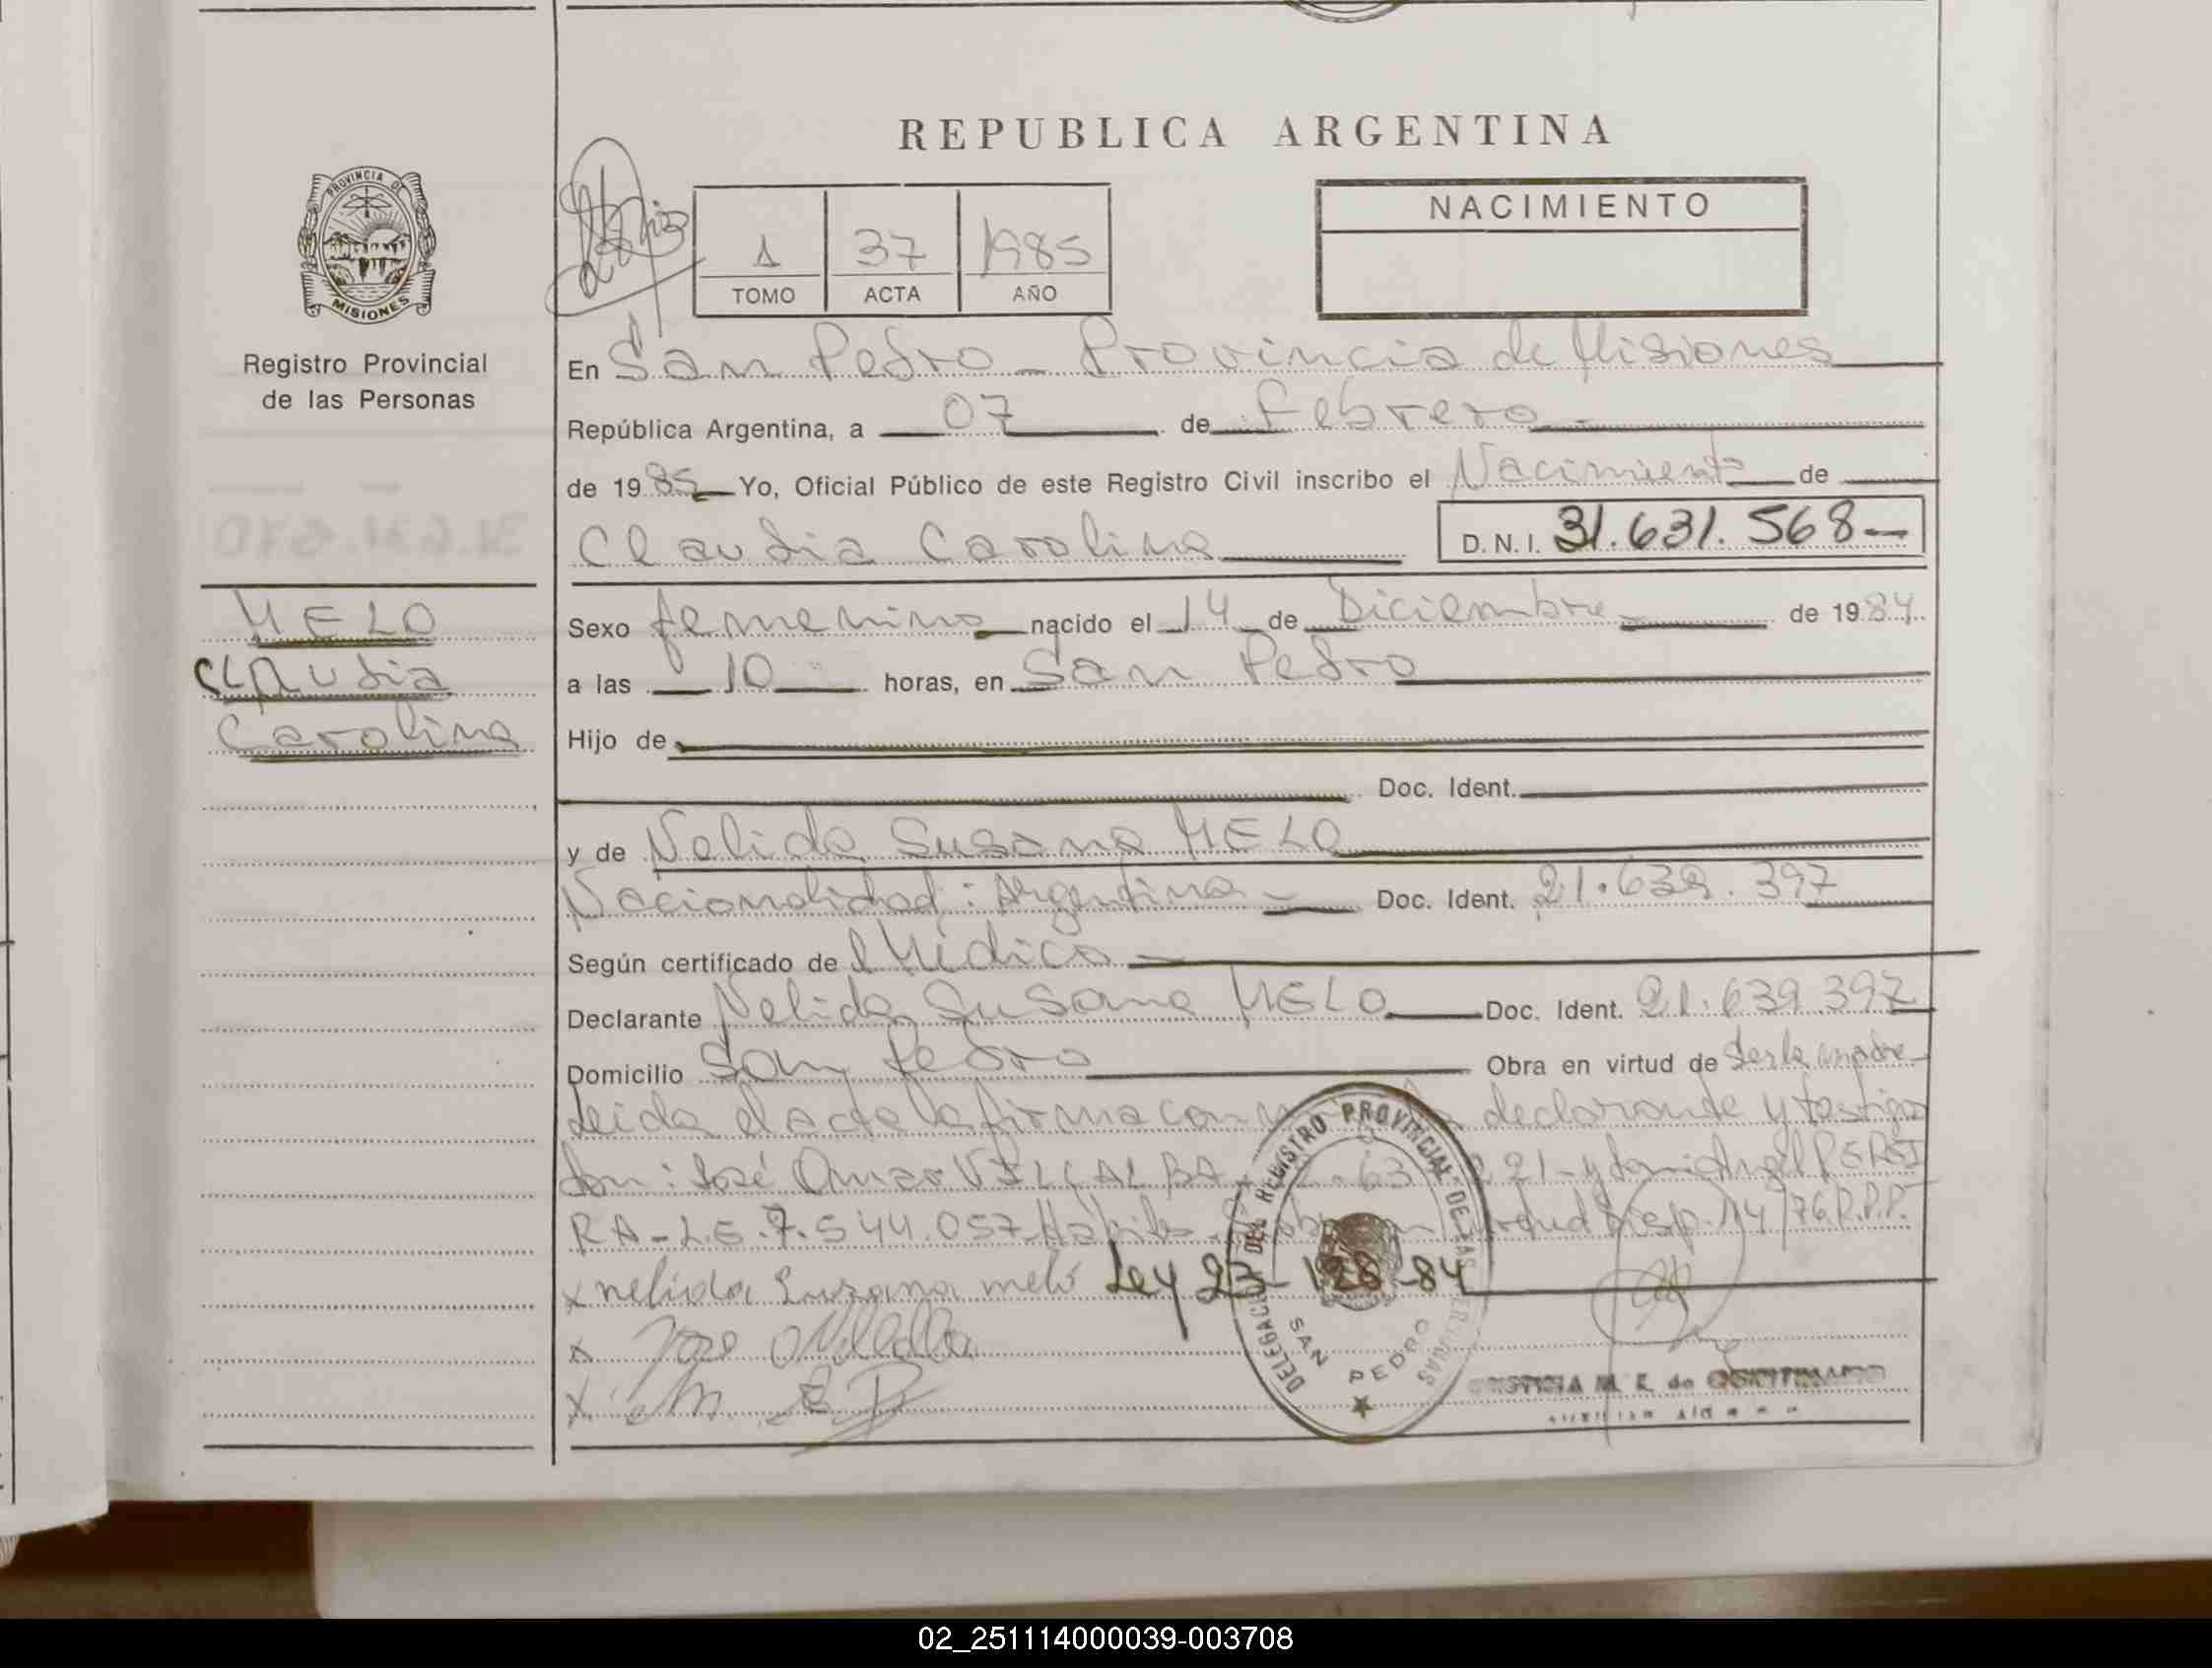 REPUBLICA ARGENTINA
PROVINCIA DE
MISIONES
Registro Provincial
de las Personas
NACIMIENTO
1 37 1985
TOMO ACTA AÑO
En San Pedro - Provincia de Misiones
República Argentina, a 07 de Febrero
de 1985 Yo, Oficial Público de este Registro Civil inscribo el Nacimiento de
Claudia Carolina D.N.I. 31.631.568-
MELO
Claudia
Carolina
Sexo femenino nacido el 14 de Diciembre de 1984
a las 10 horas, en San Pedro
Hijo de
Doc. Ident.
y de Nelida Susana MELO
Nacionalidad: Argentina Doc. Ident. 21.639.397
Según certificado de Médico
Declarante Nelida Susana MELO Doc. Ident. 21.639.397
Domicilio San Pedro Obra en virtud de ser la madre
Leida el acta la firma declarante y testigo
don: José Omar VILLALBA 221-y
RA-L.E.7.544.057 Habiles Disp. 14/76.R.P.P.
x nelida Susana melo Ley 23-128-84
DELEGACION DEL REGISTRO PROVINCIAL DE LAS PERSONAS
SAN PEDRO
02_251114000039-003708